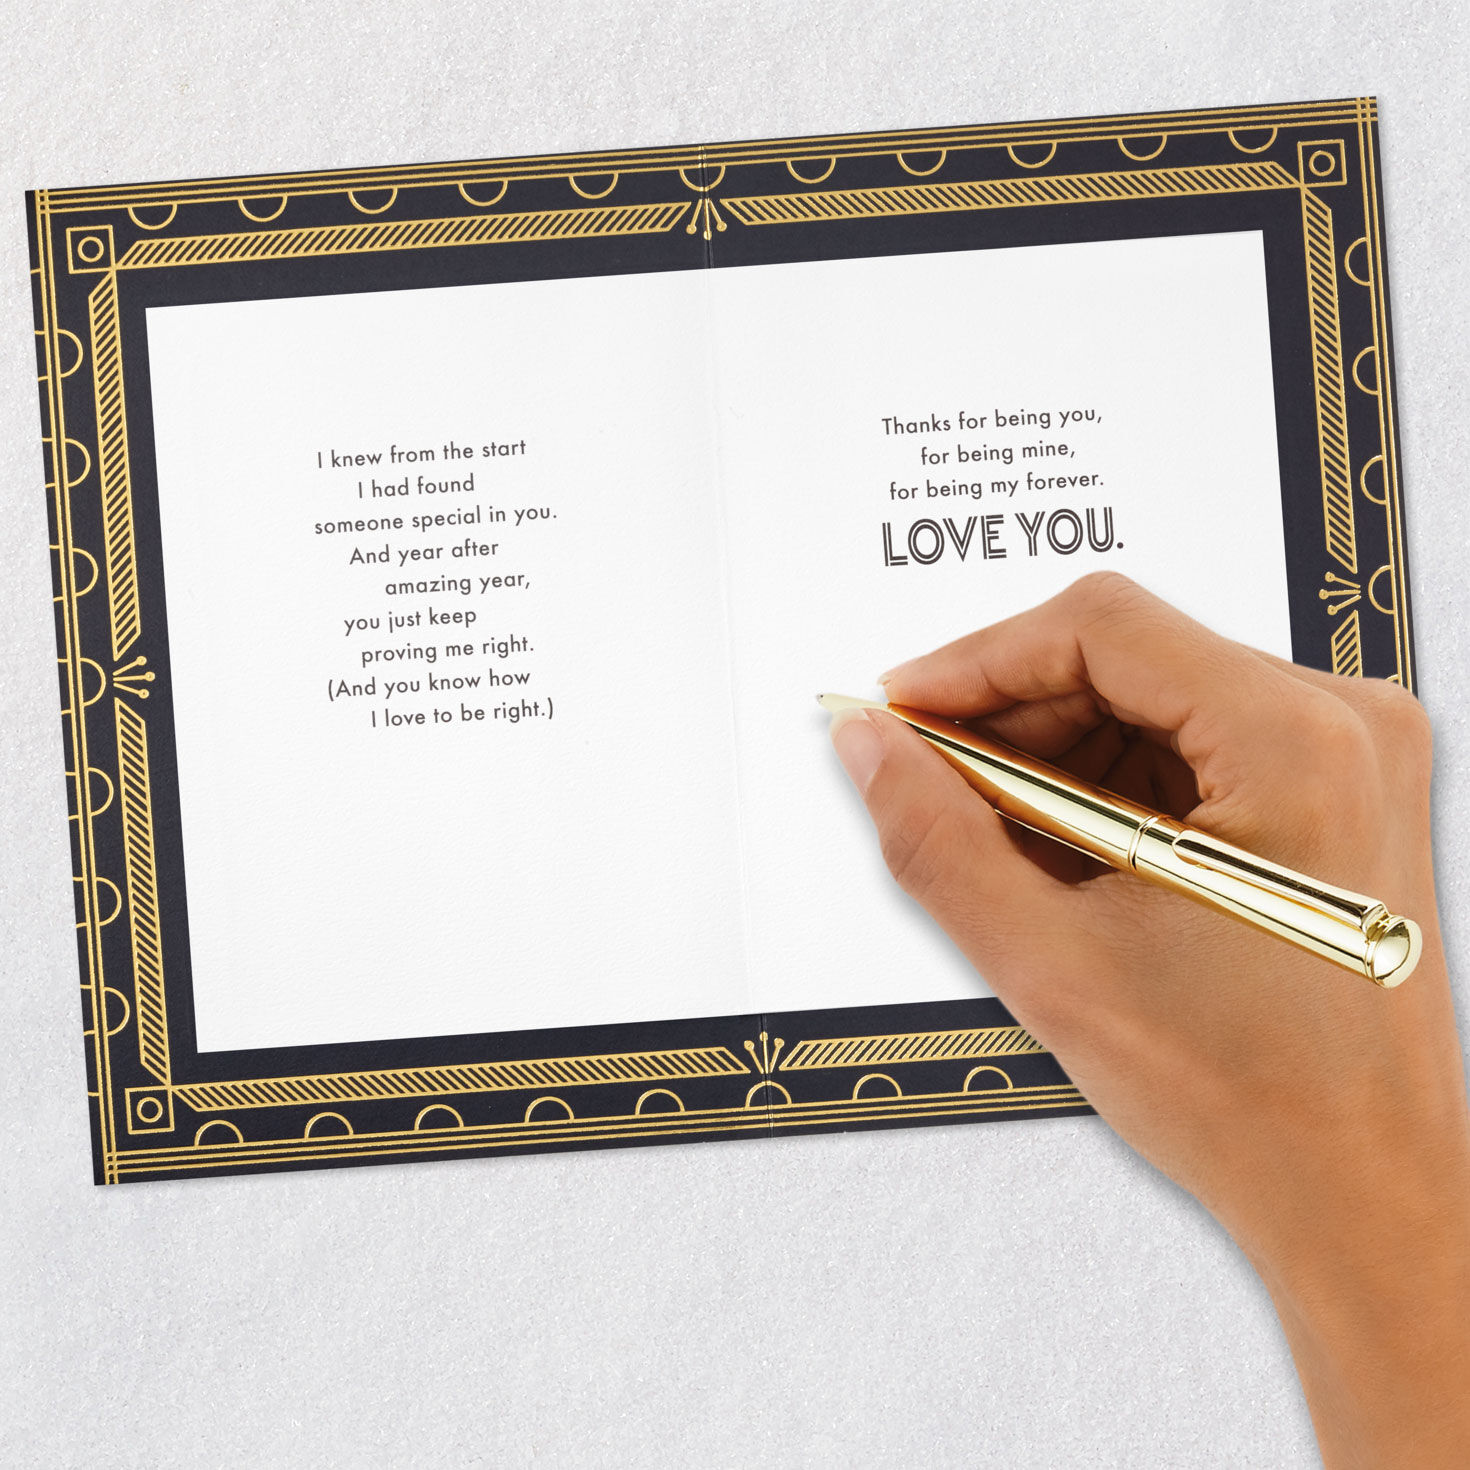 I knew from the start
I had found
someone special in you.
And year after
amazing year,
you just keep
proving me right.
(And you know how
I love to be right.)
Thanks for being you,
for being mine,
for being my forever.
LOVE YOU.